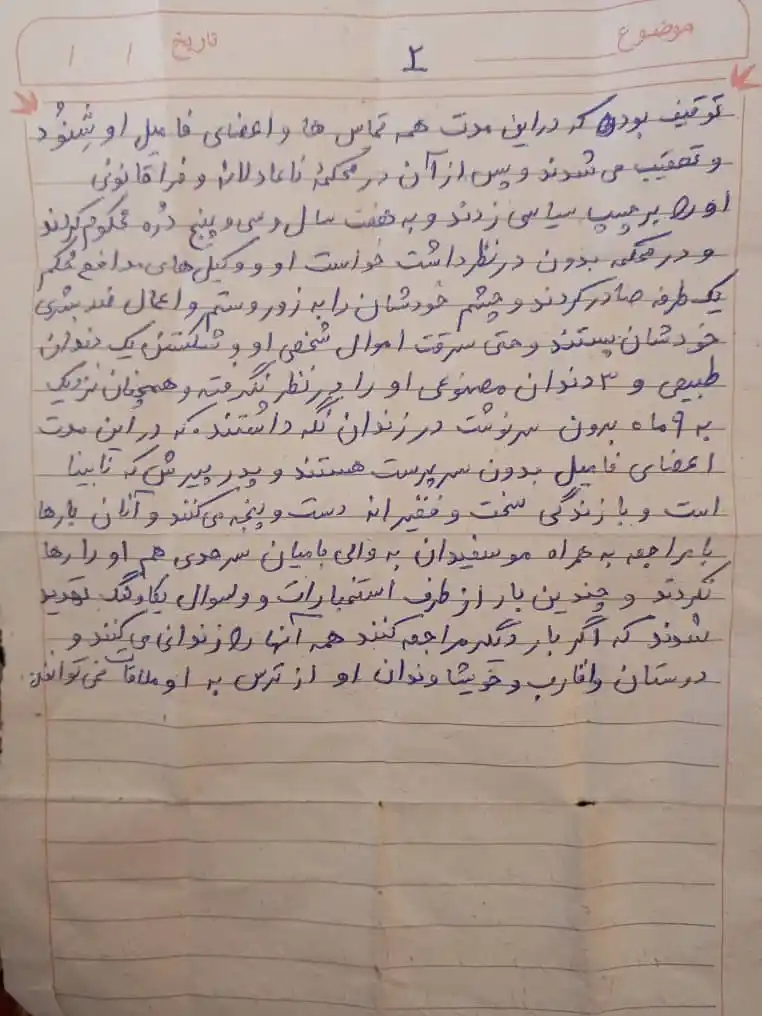 موضوع
تاریخ / /
۲
توقیف بود که در این مدت همه تماس ها و اعضای فامیل او شِنُود
و تعقیب می شدند و پس از آن در محکمهٔ ناعادلانه و فراقانونی
او را برچسپ سیاسی زدند و به هفت سال و سی و پنج دُره محکوم کردند
و در محکمه بدون در نظر داشت خواست او و وکیل های مدافع حکم
یک طرفه صادر کردند و چشم خودشان را به زور و ستم و اعمال ضد بشری
خودشان بستند و حتی سرقت اموال شخصی او و شکستن یک دندان
طبیعی و ۳ دندان مصنوعی او را در نظر نگرفته و همچنان نزدیک
به ۹ ماه بدون سرنوشت در زندان نگه داشتند. که در این مدت
اعضای فامیل بدون سرپرست هستند و پدر پیرش که نابینا
است و با زندگی سخت و فقیرانه دست و پنجه می کنند و آنان بارها
با مراجعه به همراه موسفیدان به والی بامیان سرحدی هم او را رها
نکردند و چندین بار از طرف استخبارات و ولسوال یکاولنگ تهدید
شدند که اگر بار دگر مراجعه کنند همه آنها را زندانی می کنند و
دوستان و اقارب و خویشاوندان او از ترس به او ملاقات نمی توانند.